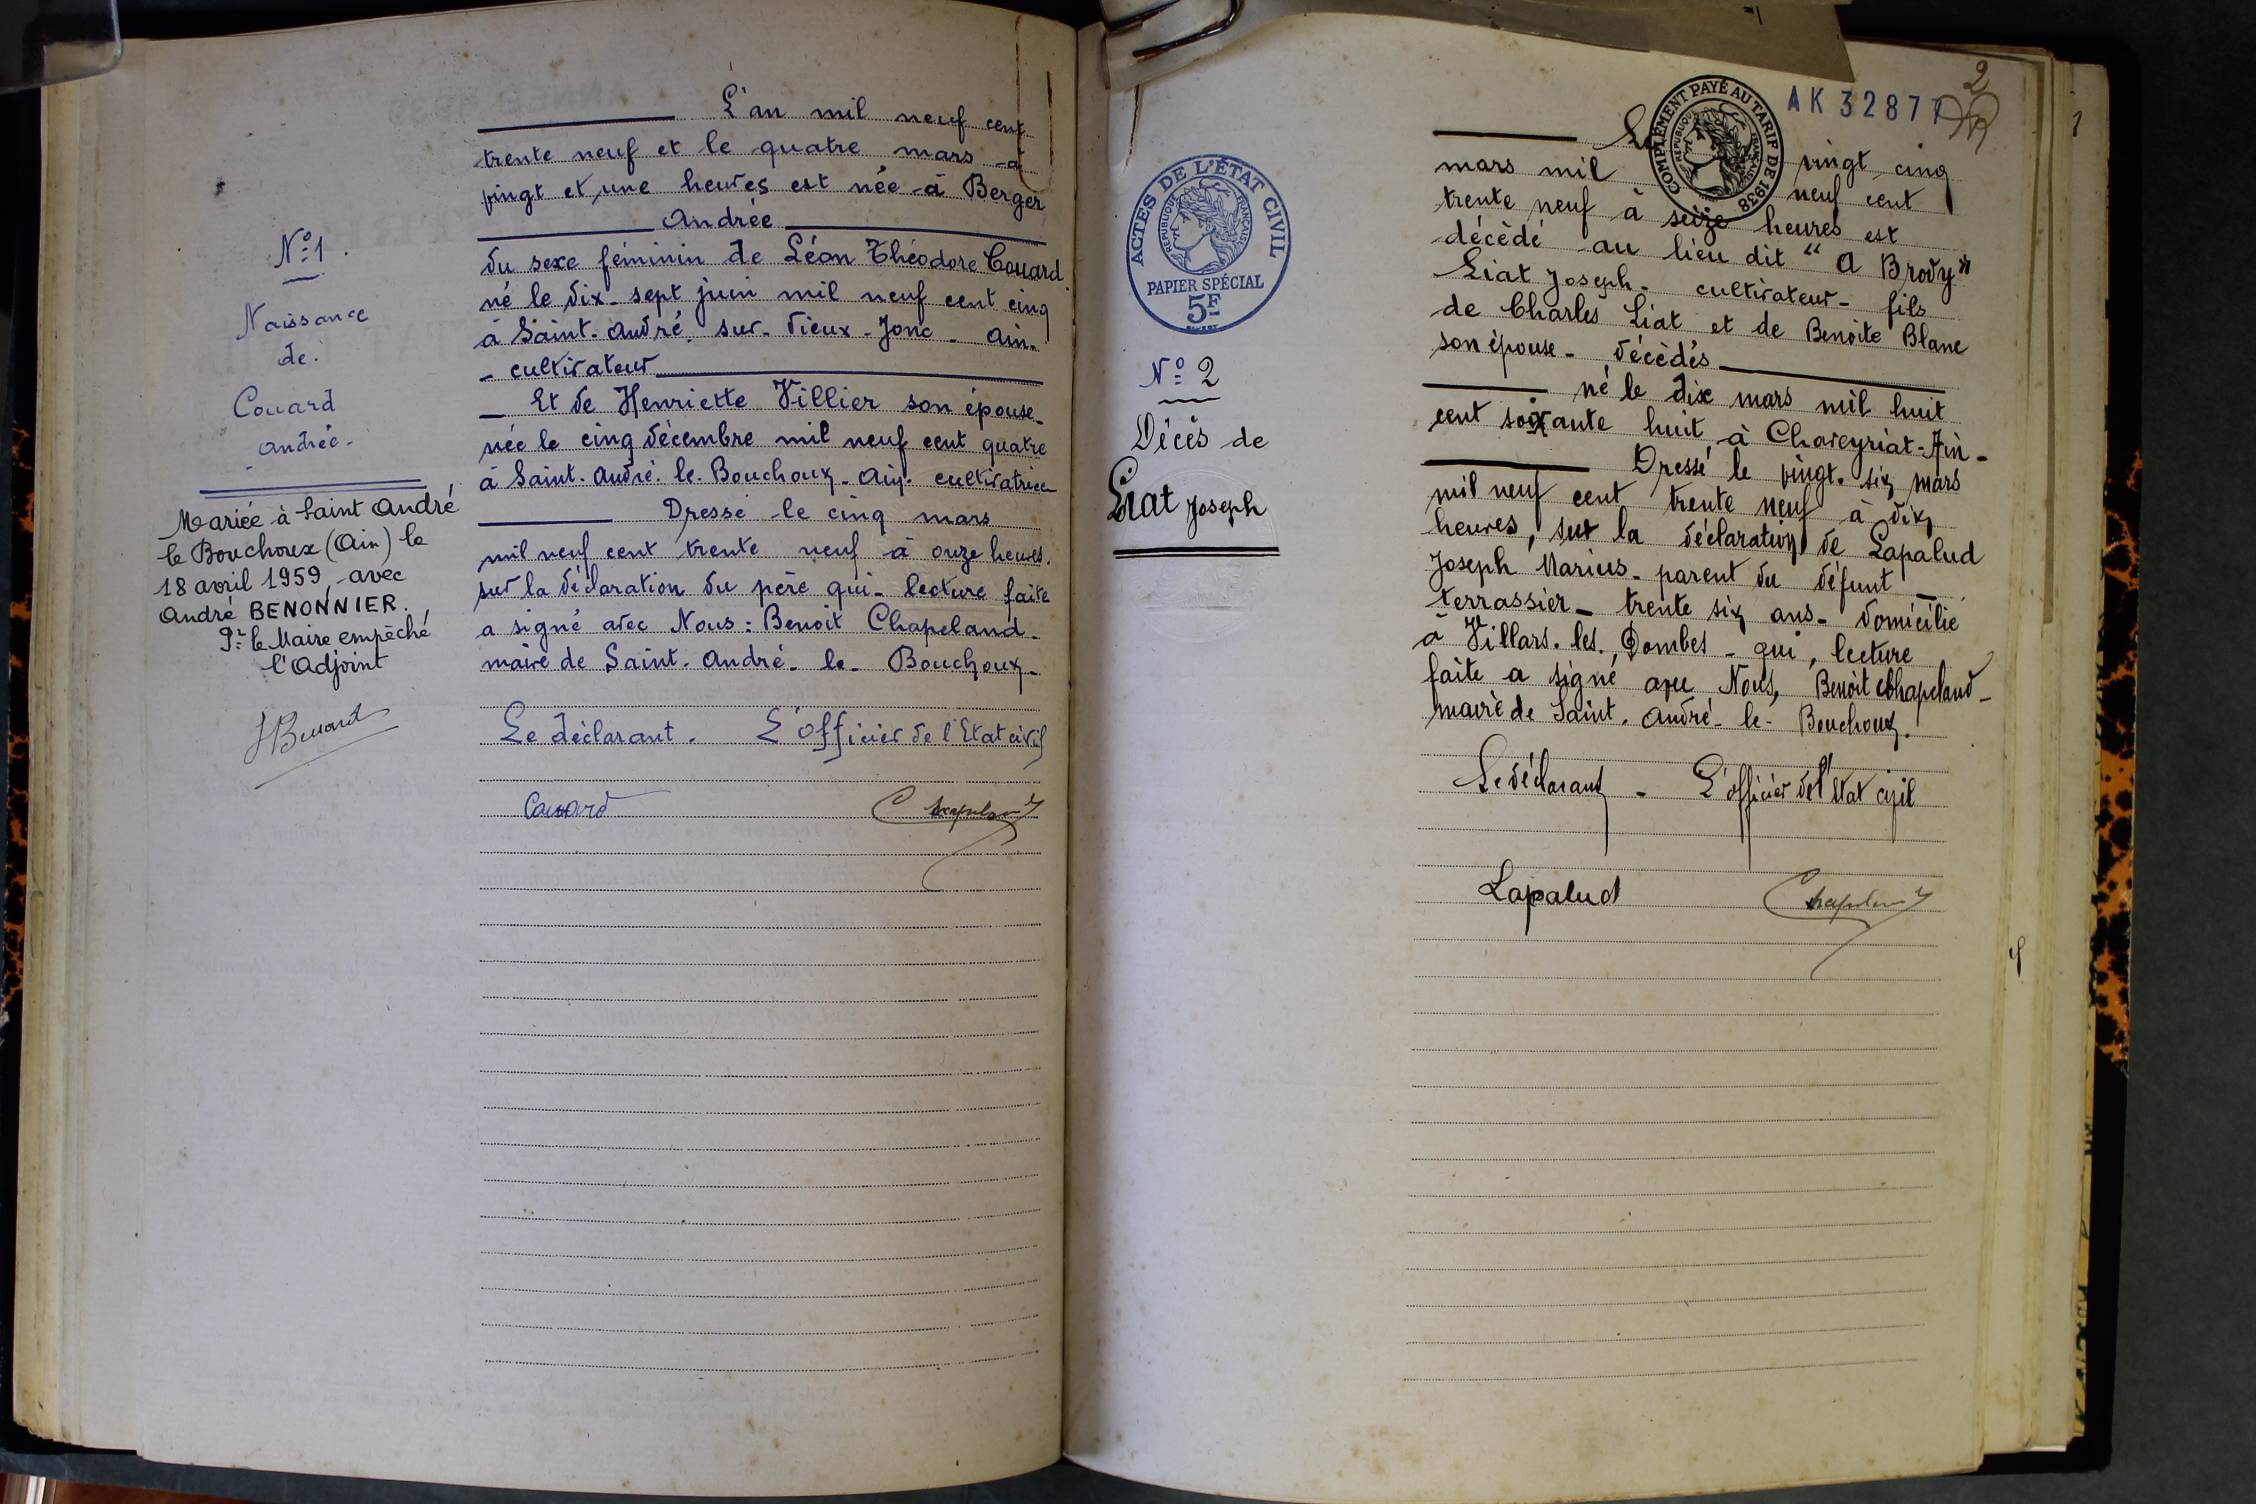 Nº 1.
Naissance
de.
Couard
Andrée.
Mariée à Saint André
le Bouchoux (Ain) le
18 avril 1959, avec
André BENONNIER.
Pr le Maire empêché
l'Adjoint
L'an mil neuf cent
trente neuf et le quatre mars à
vingt et une heures est née à Berger
Andrée
du sexe féminin de Léon Théodore Couard
né le dix-sept juin mil neuf cent cinq
à Saint-André-sur-Vieux-Jonc - Ain-
- cultivateur
- Et de Henriette Villier son épouse
née le cinq décembre mil neuf cent quatre
à Saint-André-le-Bouchoux-Ain- cultivatrice
Dressé le cinq mars
mil neuf cent trente neuf à onze heures.
sur la déclaration du père qui - lecture faite
a signé avec Nous : Benoit Chapeland-
maire de Saint-André-le-Bouchoux-
Le déclarant. L'officier de l'Etat civil
Couard Chapeland
2
AK 3287
COMPLÉMENT PAYÉ AU TARIF DE 1938
RÉPUBLIQUE FRANÇAISE
ACTES DE L'ÉTAT CIVIL
RÉPUBLIQUE FRANÇAISE
PAPIER SPÉCIAL
5F
Nº 2
Décès de
Liat Joseph
Le vingt cinq
mars mil neuf cent
trente neuf à seize heures est
décédé au lieu dit "A Brody"
Liat Joseph - cultivateur - fils
de Charles Liat et de Benoite Blanc
son épouse - décédés
né le dix mars mil huit
cent soixante huit à Chaveyriat-Ain-
Dressé le vingt-six mars
mil neuf cent trente neuf à dix
heures, sur la déclaration de Lapalud
Joseph Marius - parent du défunt -
terrassier - trente six ans - domicilié
à Villars-les-Dombes - qui, lecture
faite a signé avec Nous, Benoit Chapeland-
maire de Saint-André-le-Bouchoux.
Le déclarant - L'officier de l'Etat civil
Lapalud Chapeland